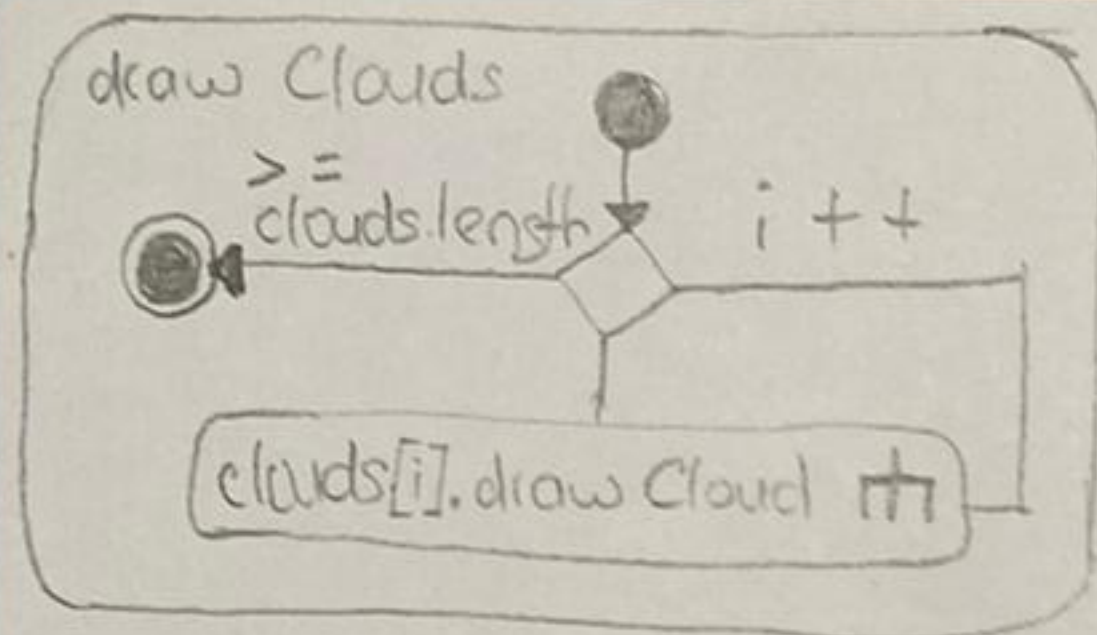 draw Clouds
> =
clouds.length
i + +
clouds[i].draw Cloud